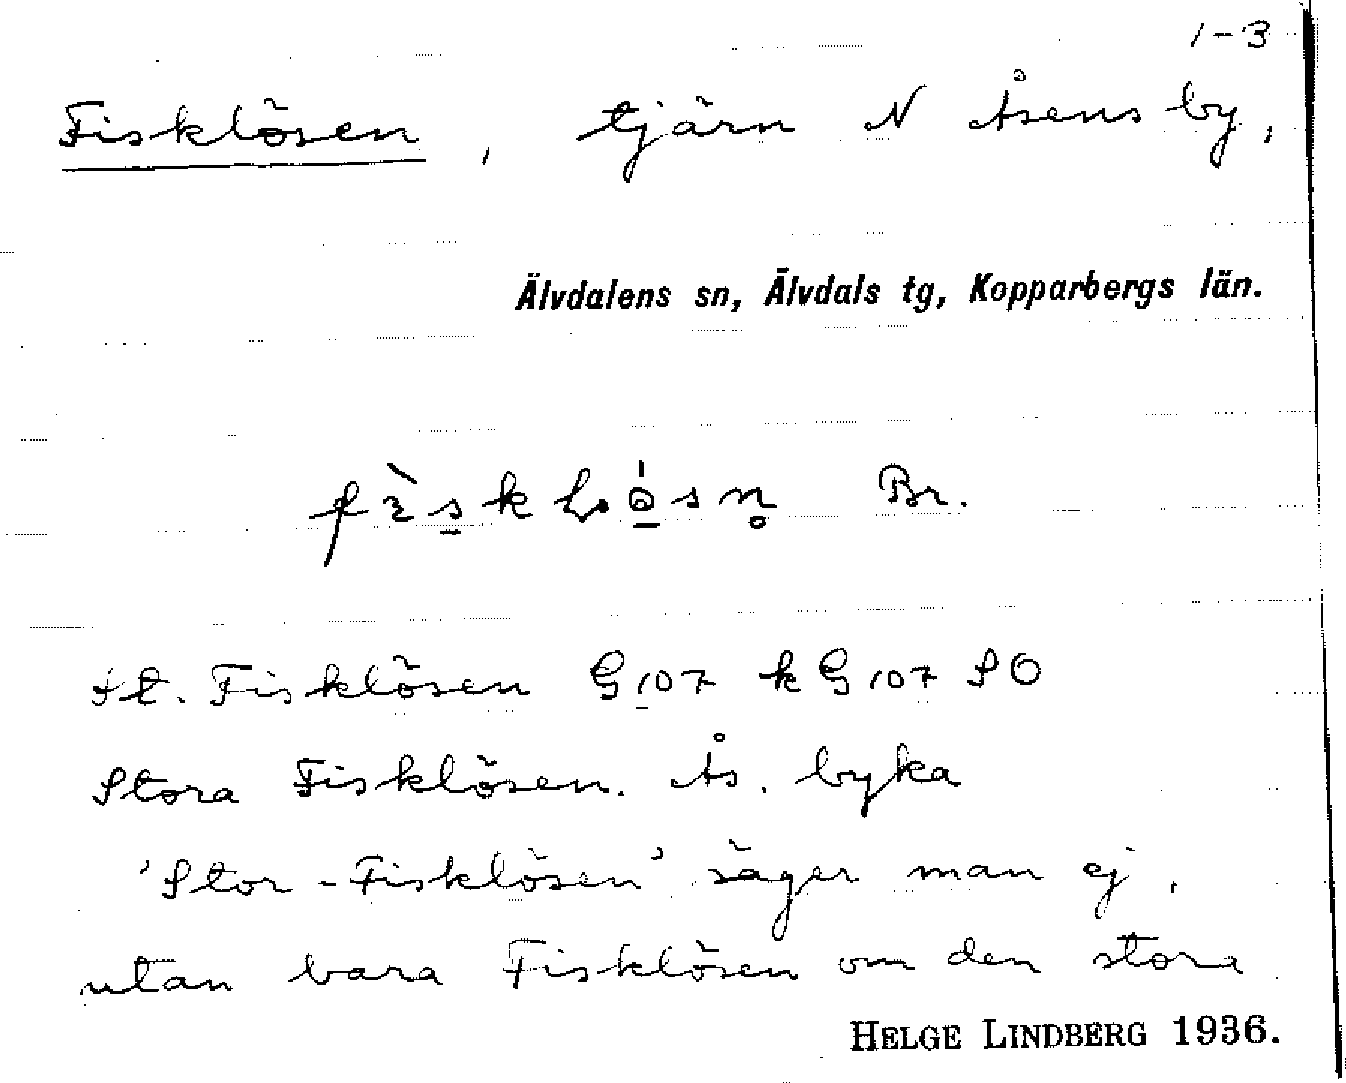 1-3
Fisklösen, tjärn N Åsens by,
Älvdalens sn, Älvdals tg, Kopparbergs län.
Br.
St. Fisklösen G 107 k G 107 SO
Stora Fisklösen. Ås. byka
'Stor-Fisklösen' säger man ej,
utan bara Fisklösen om den stora
HELGE LINDBERG 1936.